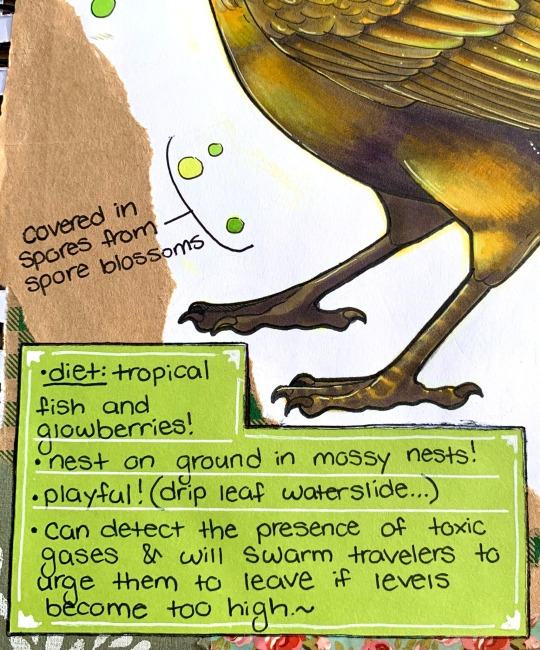 covered in
spores from
spore blossoms
•diet: tropical
fish and
glowberries!
•nest on ground in mossy nests!
•playful! (drip leaf waterslide...)
•can detect the presence of toxic
gases & will swarm travelers to
urge them to leave if levels
become too high.~